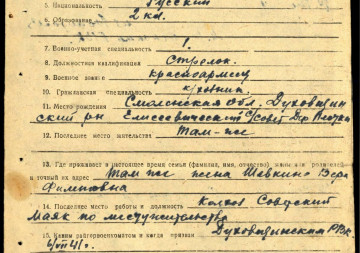 5. Национальность Русский
6. Образование 2 кл.
7. Военно-учетная специальность 1.
8. Должностная квалификация Стрелок.
9. Военное звание красноармеец
10. Гражданская специальность
11. Место рождения Смоленская обл. Духовщин
ский рн Елисеевический с/совет дер.
12. Последнее место жительства
Там-же
13. Где проживает в настоящее время семья (фамилия, имя, отчество) жены или родителей
и точный их адрес Там же жена Шавкина Вера
Филиповна
14. Последнее место работы и должность Колхоз Советский
Маяк по месту жительства
15. Каким райгорвоенкоматом и когда призван Духовщинским РВК.